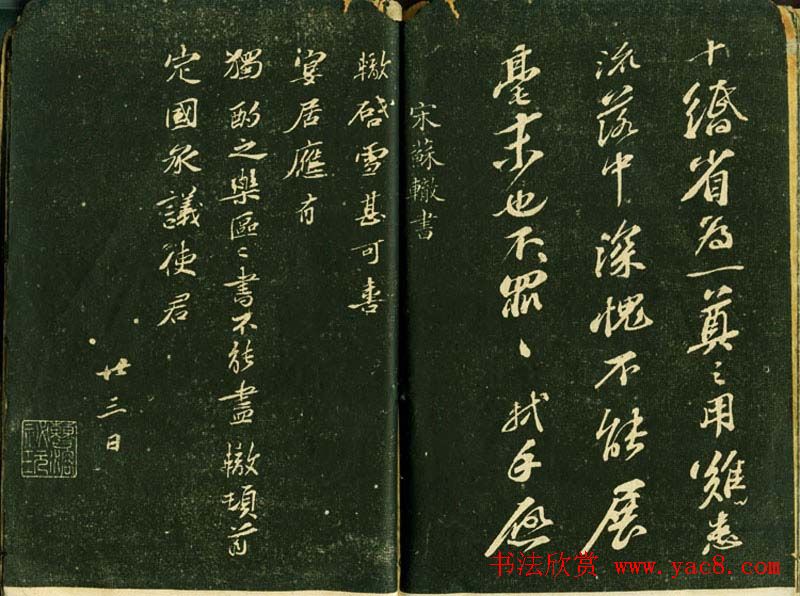 十緡省為一奠之用艱患
流落中深愧不能展
毫末也不罪〻軾手啟
宋蘇轍書
轍啓雪甚可喜
宴居應有
獨酌之樂區〻書不能盡轍頓首
定國承議使君
廿三日
书法欣赏 www.yac8.com